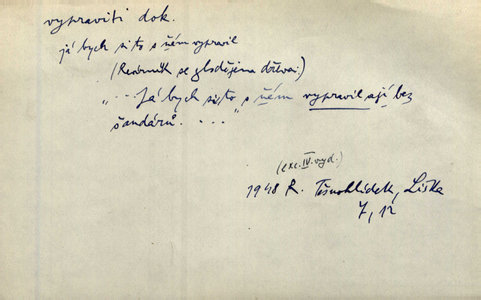 vypraviti dok.
já bych si to s ním vypravil
(Revírník se zlodějem dříví:)
"... Já bych si to s ním vypravil ají bez
šandárů. ..."
(exc. IV. vyd.)
1948 R. Těsnohlídek, Liška
7, 12